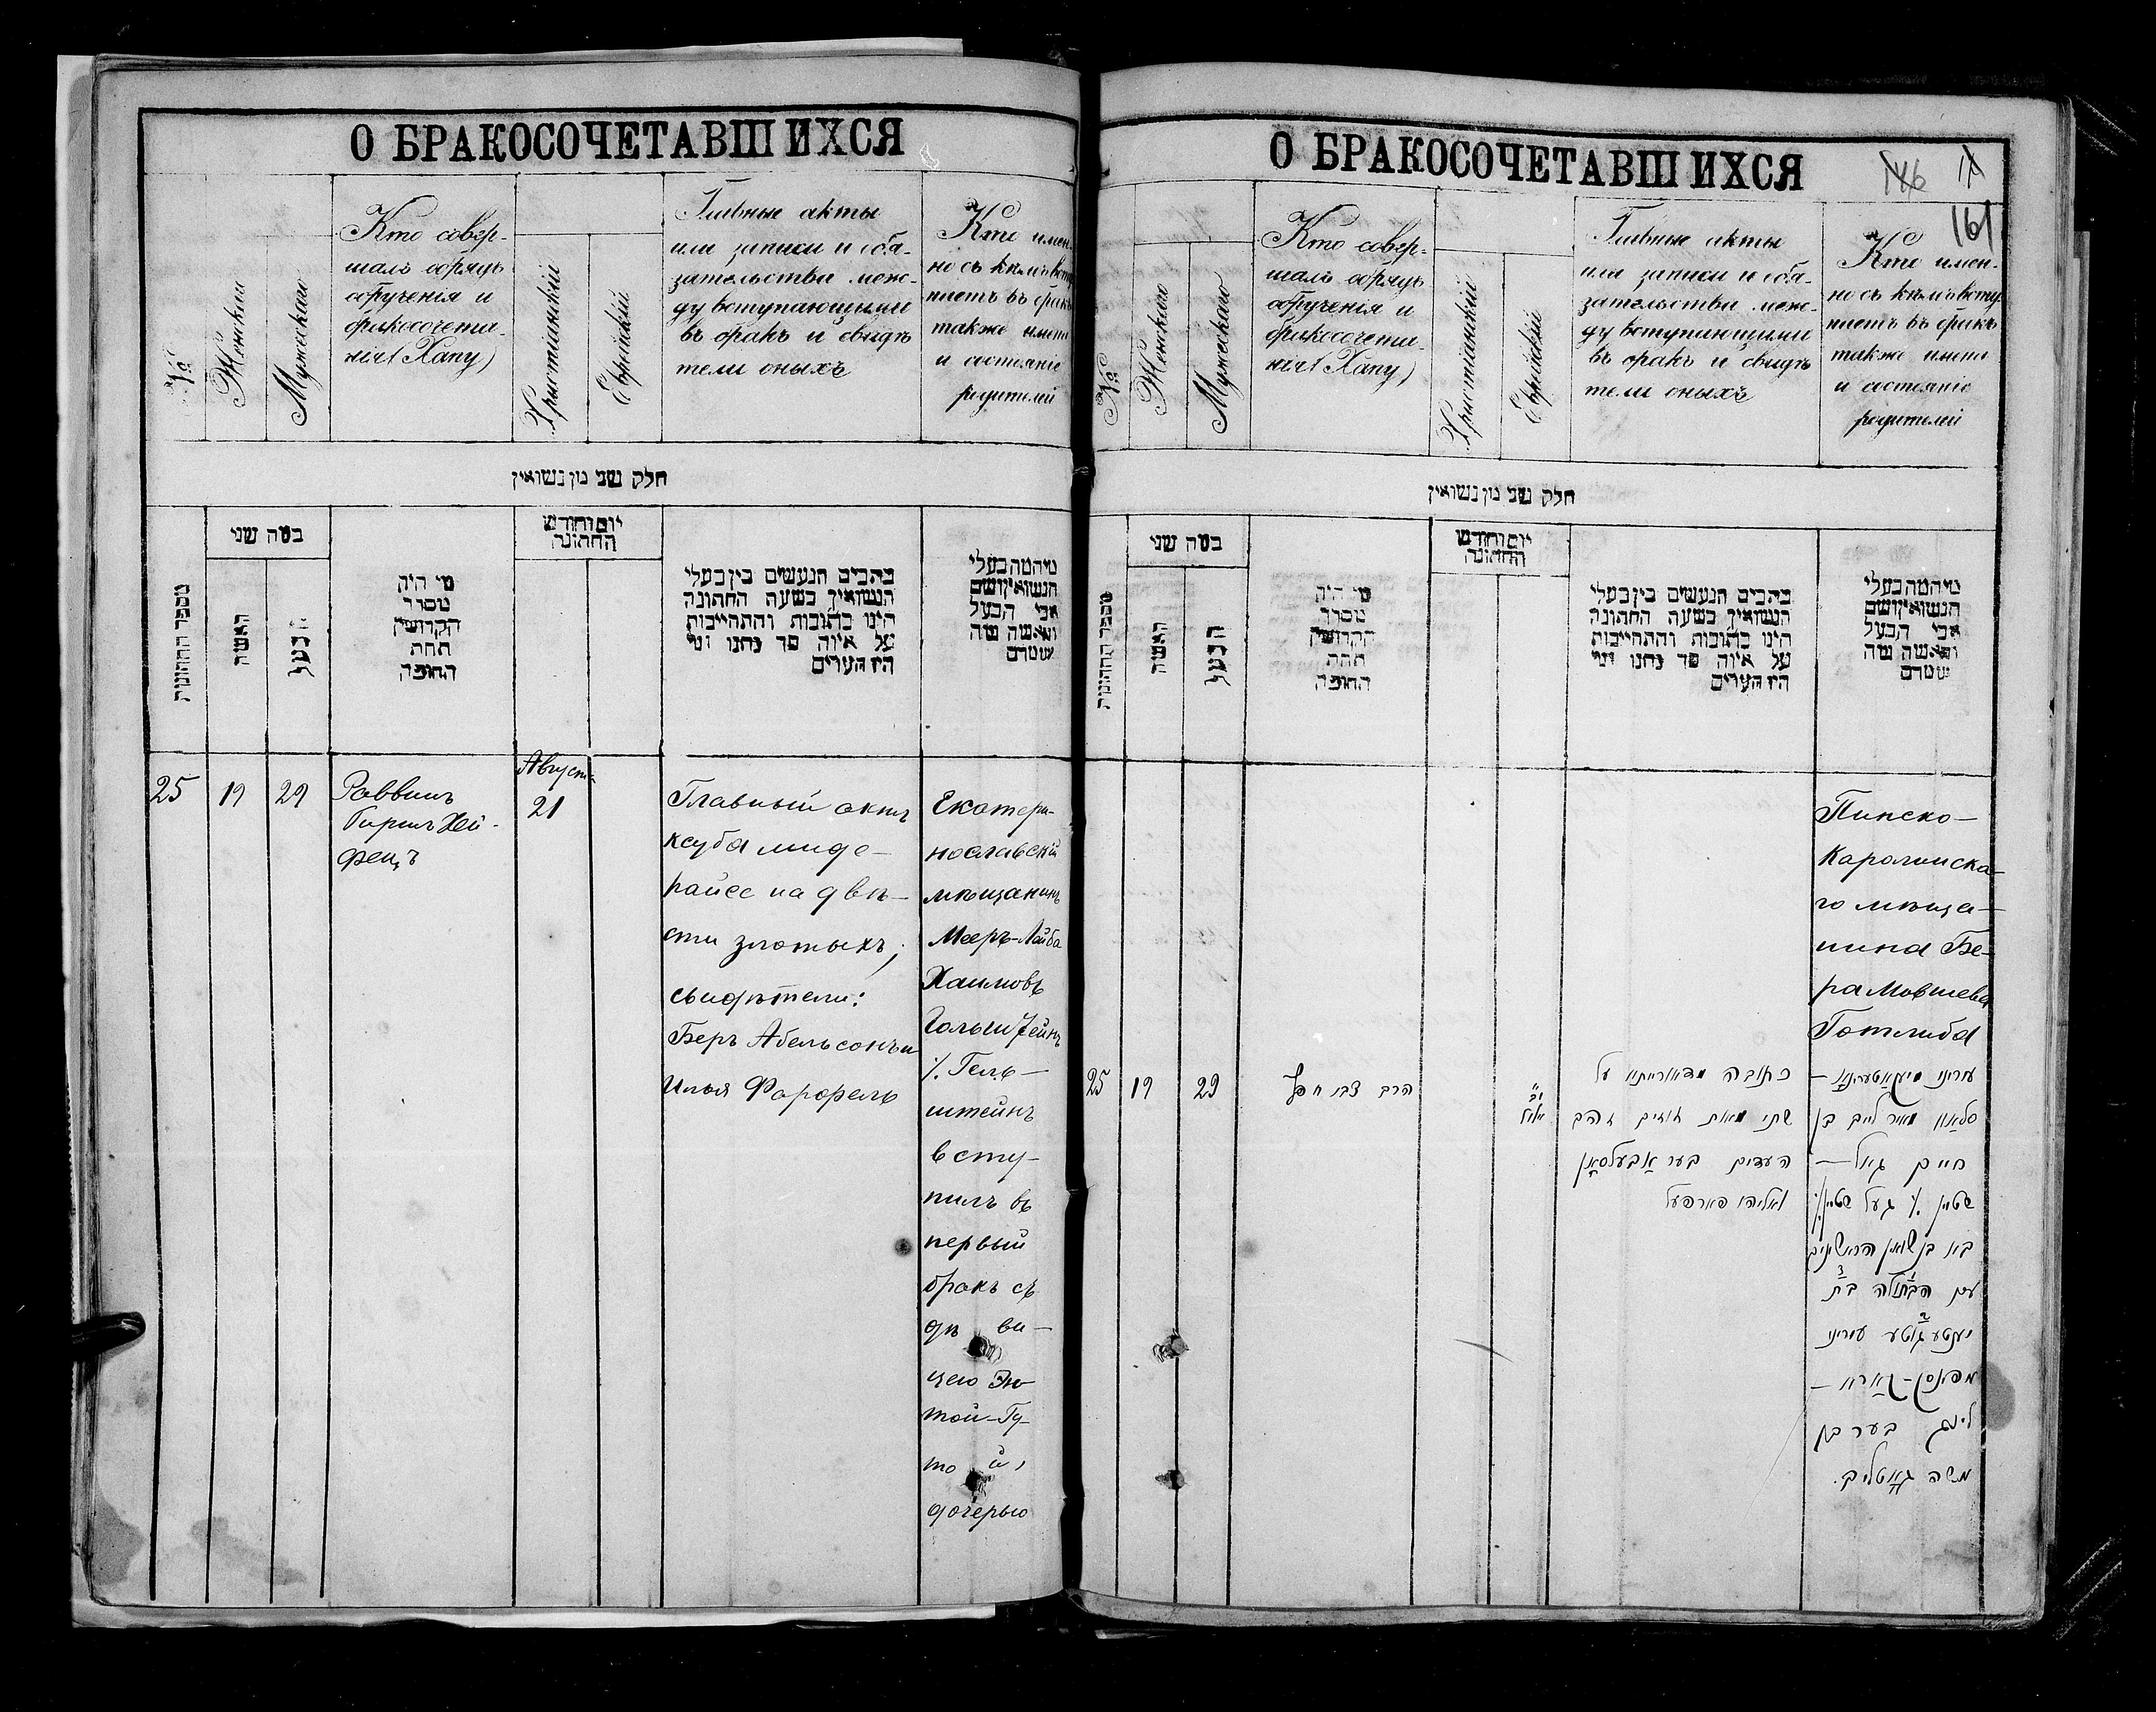 О БРАКОСОЧЕТАВШИХСЯ
№
Женскій
Мужескаго
Кто совер-
шалъ обрядъ
обрученія и
бракосочета-
нія (Хапу)
Христіанскій
Еврейскій
Главные акты
или записи и обя-
зательства меж-
ду вступающими
въ бракъ и свидѣ
тели оныхъ
Кто имен-
но съ кѣмъ всту
паетъ въ бракъ
также имена
и состояніе
родителей
חלק שני מן נשואין
מספר החתונות
כמה שני
האשה
הבעל
מי היה
מסדר
הקדושין
תחת
החופה
יום וחודש
החתונה
כתבים הנעשים בין בעלי
הנשואין בשעת החתונה
היינו כתובות והתחייבות
על איזה סך נתנו ומי
היו העדים
מי המה בעלי
הנשואין ושם
אבי הבעל
והאשה ומה
שמדם
25
19
29
Раввинъ
Гиршъ Хей-
фецъ
Августъ
21
Главный актъ
ксуба миде-
райсе на двѣ-
сти злотыхъ;
свидѣтели:
Беръ Абельсонъ и
Илья Фарфель
Екатери-
нославскій
мѣщанинъ
Мееръ-Лейба
Хаимовъ
Гольштейнъ
/. Гель-
штейнъ
всту-
пилъ въ
первый
бракъ съ
дѣ ви-
цею Эн-
той-Гу-
то й,
дочерью
О БРАКОСОЧЕТАВШИХСЯ
146
161
№
Женскаго
Мужескаго
Кто совер-
шалъ обрядъ
обрученія и
бракосочета-
нія (Хапу)
Христіанскій
Еврейскій
Главные акты
или записи и обя-
зательства меж-
ду вступающими
въ бракъ и свидѣ
тели оныхъ
Кто имен-
но съ кѣмъ всту
паетъ въ бракъ
также имена
и состояніе
родителей
חלק שני מן נשואין
מספר החתונות
כמה שני
האשה
הבעל
מי היה
מסדר
הקדושין
תחת
החופה
יום וחודש
החתונה
כתבים הנעשים בין בעלי
הנשואין בשעת החתונה
היינו כתובות והתחייבות
על איזה סך נתנו ומי
היו העדים
מי המה בעלי
הנשואין ושם
אבי הבעל
והאשה ומה
שמדם
Пинско-
Каролинска-
го мѣща-
нина Бе-
ра Мовшева
Готлиба
25
19
29
הרב צבי חפץ
אלול
כתובה מדאורייתא על
שתי מאות זוזים זהב
העדים בער אבעלסאן
ואליהו פארפעל
עירוני מיעקאטערינא-
סלאוו מאיר לייב בן
חיים גאל-
שטיין /. געל שטיין /.
בא בנשואין הראשונים
עם הבתולה בת
יענטע גוטע עירוני
מפינסק-קארא-
לין בער בן
משה גאטליב.